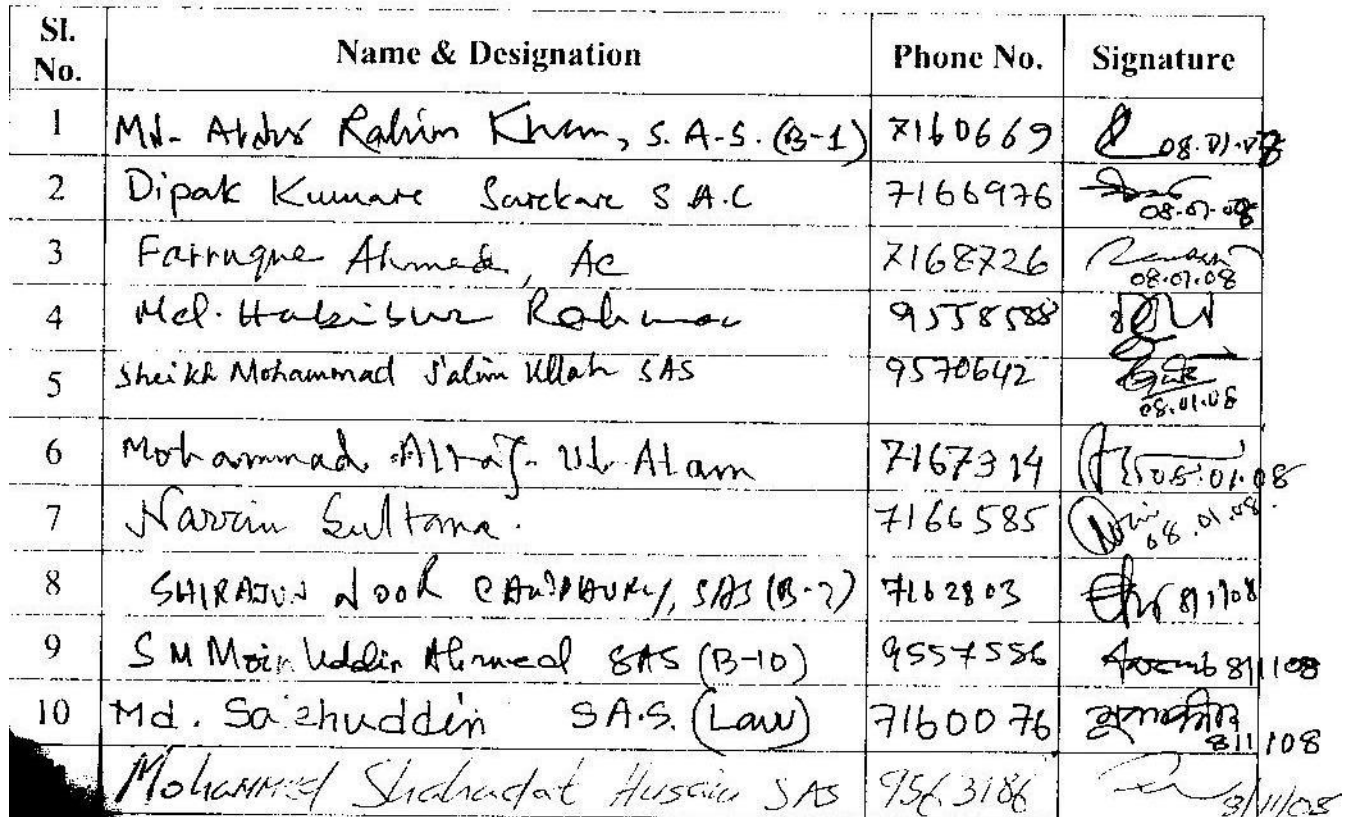 Sl. No. Name & Designation Phone No. Signature
1 Md. Abdur Rahim Khan, S.A.S. (B-1) 7160669 08.01.08
2 Dipak Kumare Sarckare S A.C 7166976 08.01.08
3 Farruque Ahmed, Ac 7168726 08.01.08
4 Md. Habibur Rahman 9558588
5 Sheikh Mohammad Salim Ullah SAS 9570642 08.01.08
6 Mohammad Altaf-Ul-Alam 7167314 08.01.08
7 Nasrin Sultana. 7166585 08.01.08.
8 SHIRAJUN NOOR CHOWDHURY, SAS (B-2) 7162803 8/1/08
9 S M Moin Uddin Ahmed SAS (B-10) 9557556 8/1/08
10 Md. Saizhuddin S.A.S. (Law) 7160076 8/1/08
Mohammed Shahadat Husain SAS 9563186 8/11/08